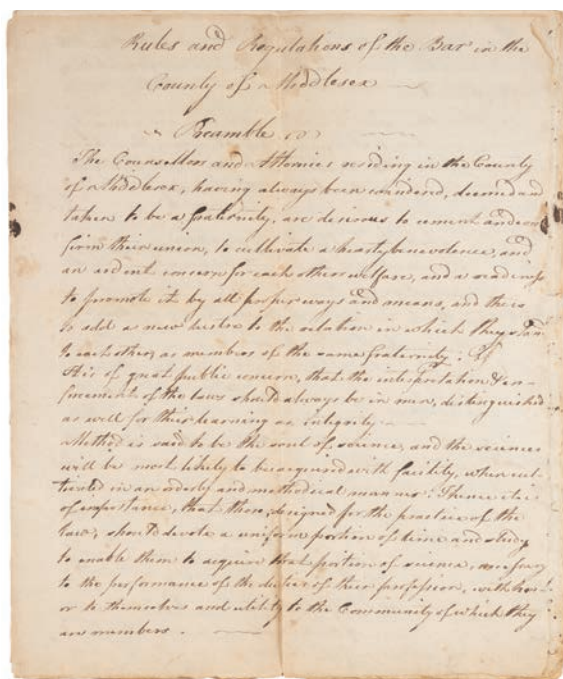 Rules and Regulations of the Bar in the
County of Middlesex
Preamble
The Counsellors and Attornies residing in the County
of Middlesex, having always been considered, deemed and
taken to be a fraternity, are desirous to cement and con
firm their union, to cultivate a hearty benevolence, and
an ardent concern for each others welfare, and a readiness
to promote it by all proper ways and means, and thus
to add a new lustre to the relation in which they stand
to each other, as members of the same fraternity;
It is of great public concern, that the interpretation & en-
forcement of the laws should always be in men, distinguished
as well for their learning as integrity
Method is said to be the soul of science, and the sciences
will be most likely to be acquired with facility, when cul-
tivated in an orderly and methodical manner: Thence it is
of importance, that those, designed for the practice of the
law, should devote a uniform portion of time and study
to enable them to acquire that portion of science, necessary
to the performance of the duties of their profession, with hon-
or to themselves and utility to the Community of which they
are members.